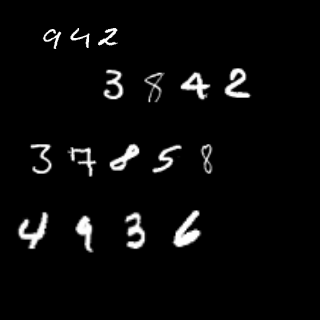 942
3842
37858
4936